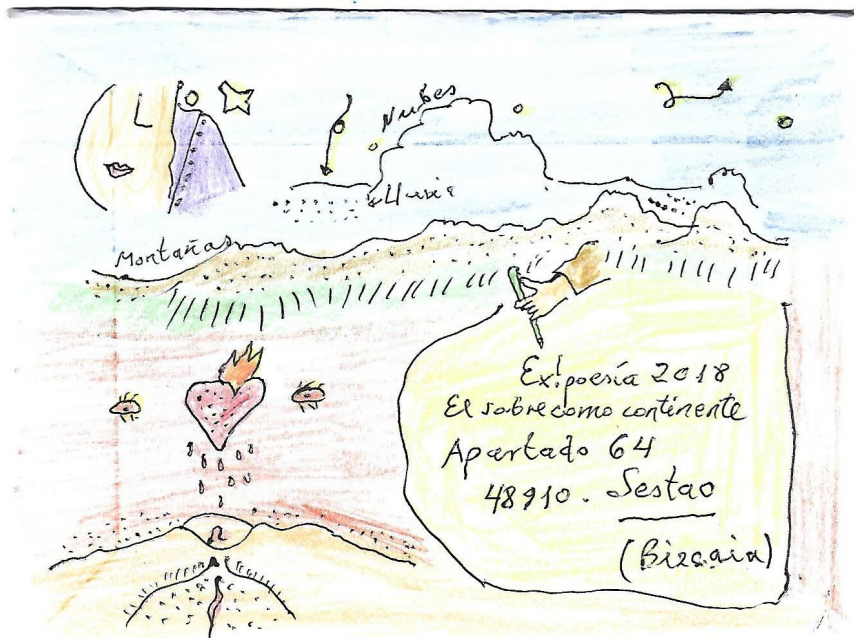 Nubes
Lluvia
Montañas
Ex!poesía 2018
El sobre como continente
Apartado 64
48910. Sestao
(Bizcaia)